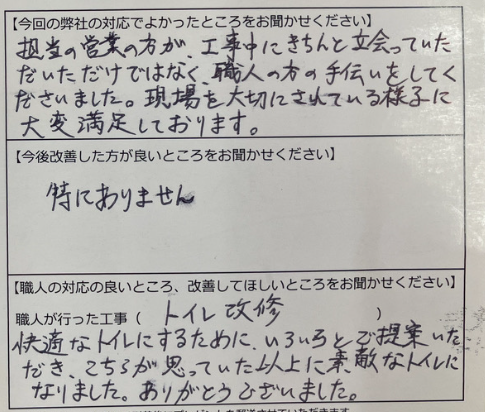 【今回の弊社の対応でよかったところをお聞かせください】
担当の営業の方が、工事中にきちんと立会っていた
だいただけではなく、職人の方の手伝いをしてく
ださいました。現場を大切にされている様子に
大変満足しております。
【今後改善した方が良いところをお聞かせください】
特にありません
【職人の対応の良いところ、改善してほしいところをお聞かせください】
職人が行った工事（ トイレ改修 ）
快適なトイレにするために、いろいろとご提案いた
だき、こちらが思っていた以上に素敵なトイレに
なりました。ありがとうございました。